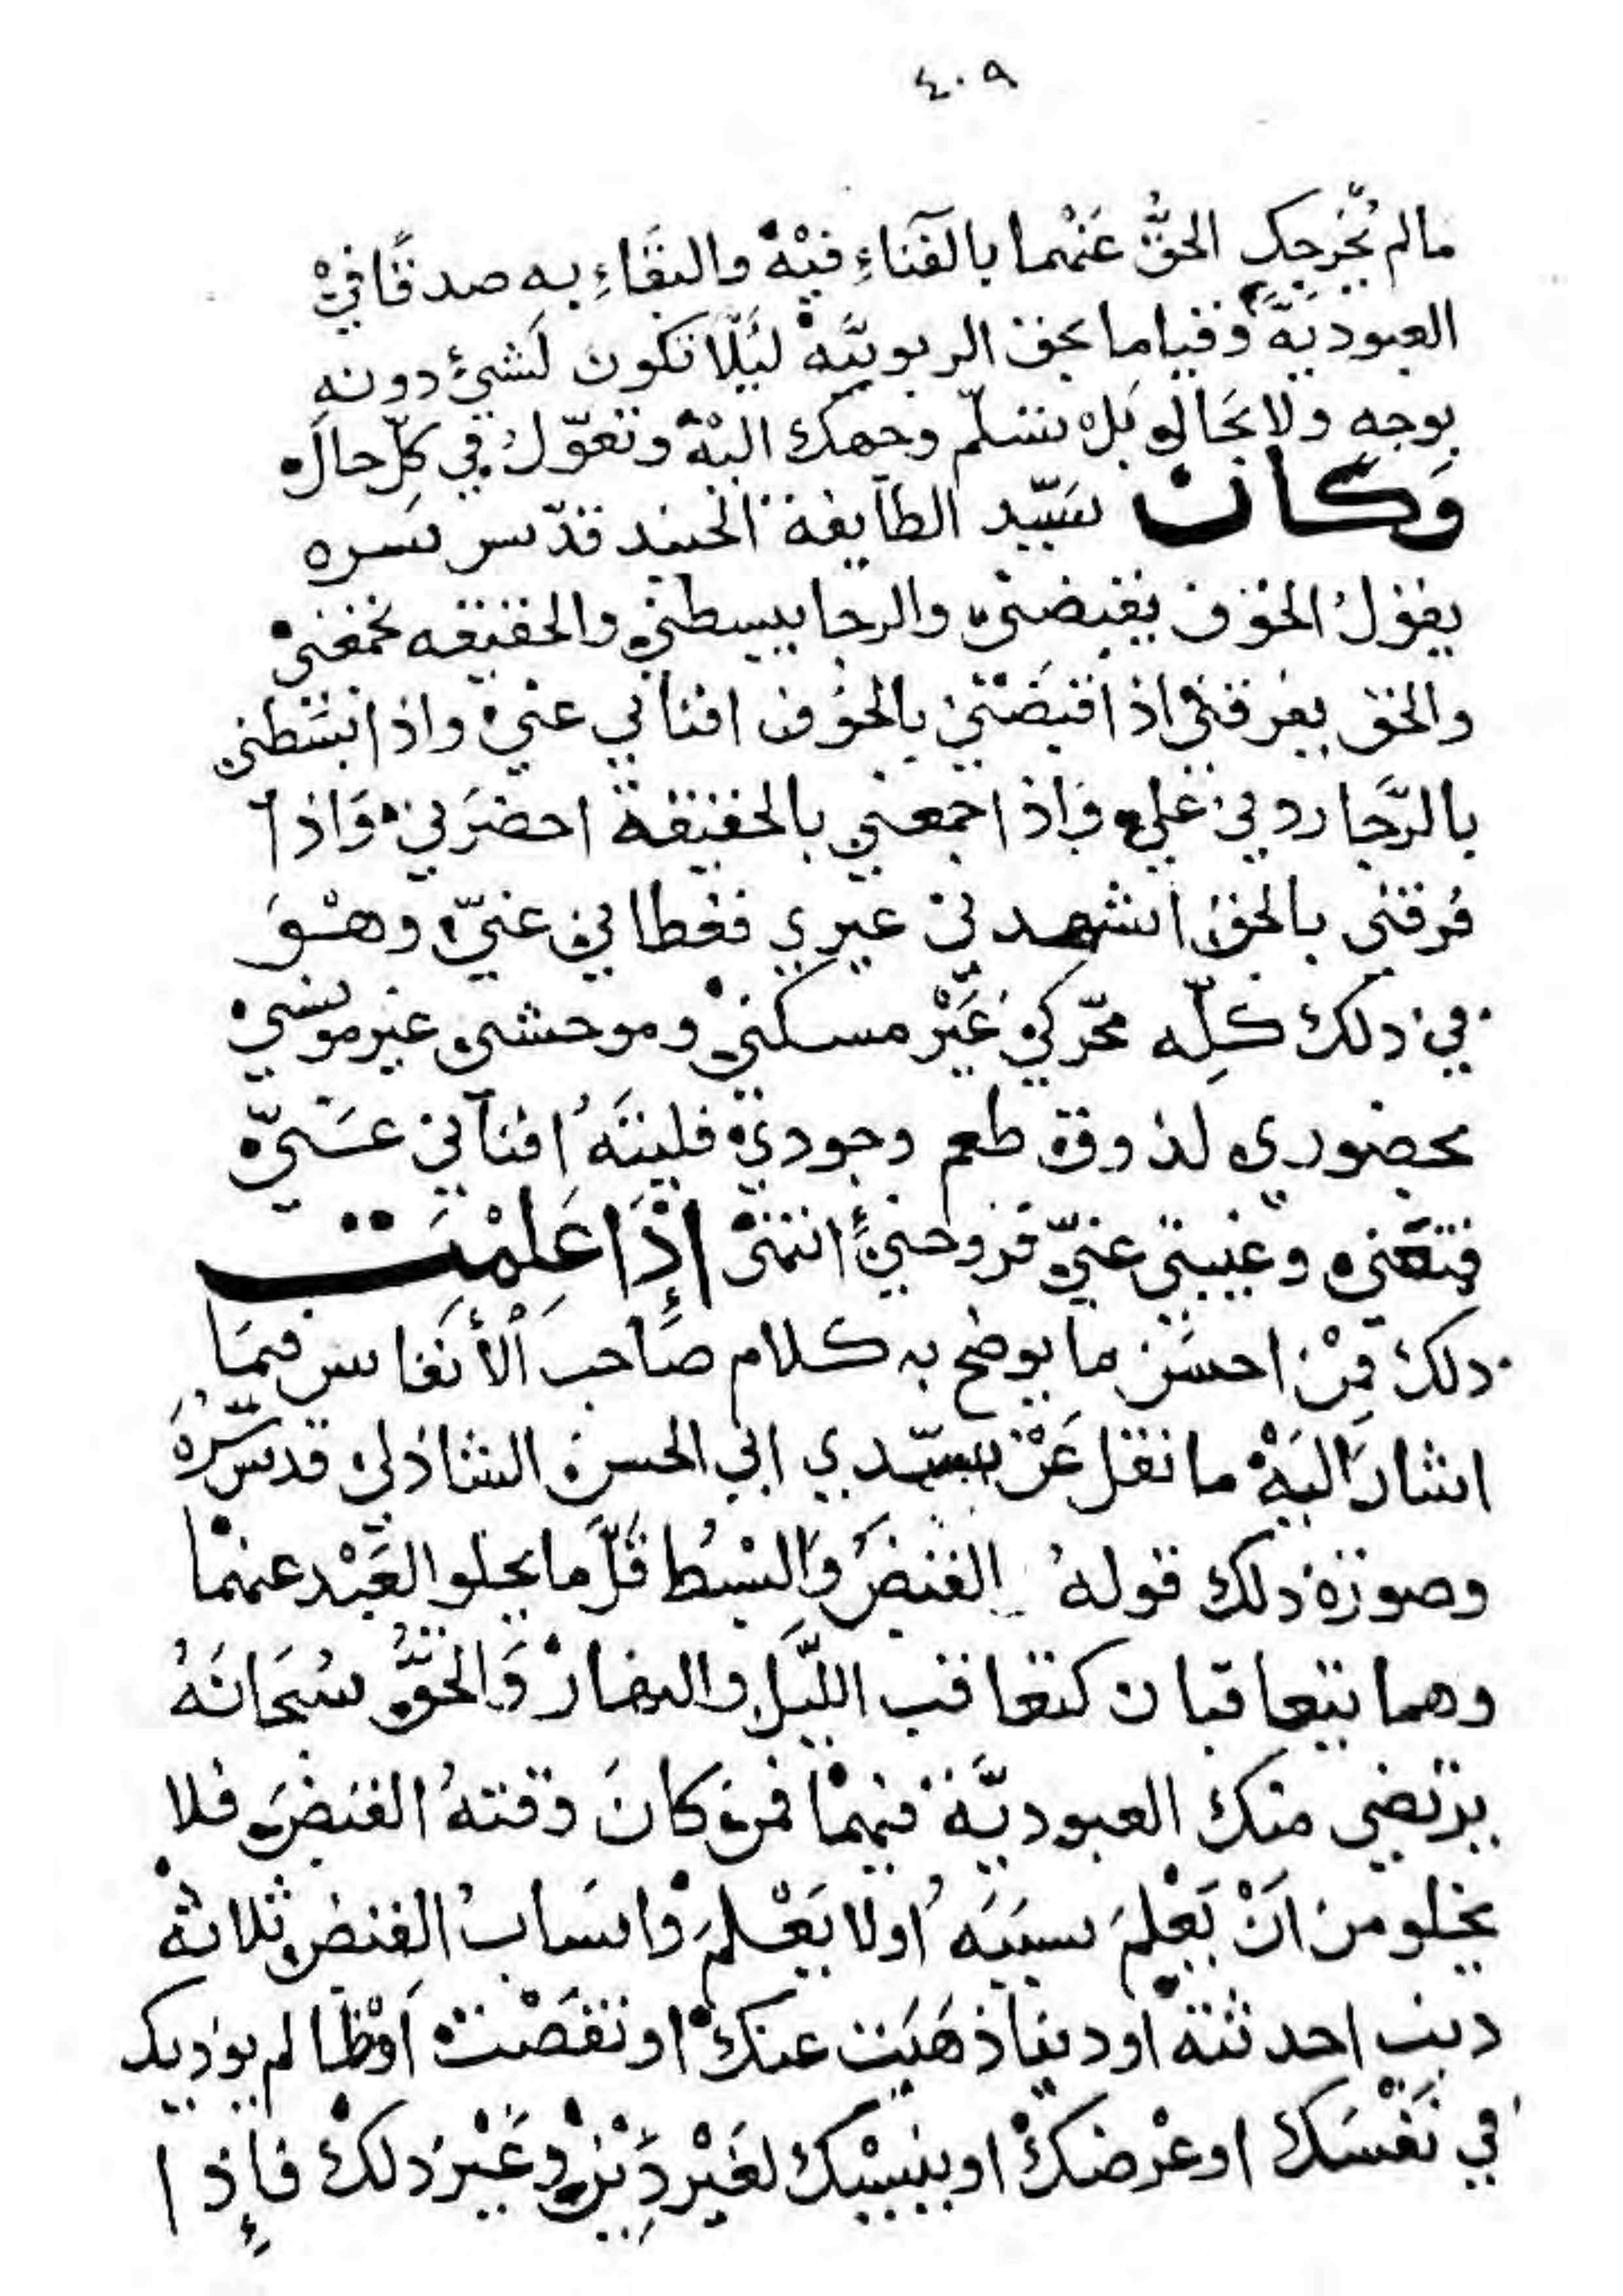 ٤٠٩
مالم يُخرجك الحقُّ عَنْهما بالفَناءِ فيْهْ والبقَاءِ به صدقًا فيْ
العبوديّةً وقياما بحق الربوبيَّةْ ليَّلّا تكون لَشيءٍ دونه
بوجهٍ ولا بحَالٍ بَلْ تسّلم وجهك اليْهْ وتعوّلُ في كلِّ حالْ
وَكان سَيّد الطآيفة الجنيد قدّس سَره
يقولُ الخوف يقبضني والرجا يبسطني والحقيقه تجمعني
والحق يفرقني اذا قبَضَني بالخوف افناني عني واذا بسَطني
بالرَّجا ردني عَلي واذا جمعني بالحقيقة احضرَني وَاذا
فرقني بالحق اشهدني غيري فغطاني عنيّ وهْوَ
في ذلك كلِّه محّركي غَيْر مسكني وموحشي غير مونسي
بحضوري لذوق طعم وجودي فليتَهُ افنآني عَنيّ
فمتعني وغيبني عنيّ فروحني انتهى إذَا عَلِمْتَ
ذلك فمِنْ احسَن ما يوضح به كلام صَاحب الأنفاس فيمَا
اشارَ اليَهْ ما نقل عَنْ سيّدي ابي الحسن الشاذلي قدس سّرهُ
وصورة ذلك قولهُ القبضُ وَالبسْطُ قَلَّ ما يخلو العَبْد عنهمْا
وهما يتعاقبان كتعاقب الليَّل والنهارْ وَالحَقُّ سُبحَانَهُ
يرتضي منك العبوديَّة فيهمْا فمن كانَ وقتهُ القبضَ فلا
يخلو من انْ يَعْلمَ سببَه اولا يَعْلمَ واسَبابُ القبض ثلاثةْ
ذنب احدثتهْ اودنيا ذهَبَت عنكْ او نقصَتْ اوْظالم يوذيك
في نَفْسَك او عرْضكْ او ينسبْك لغَيْر دِيْنْ وغَيْرُ ذلكْ فإذا